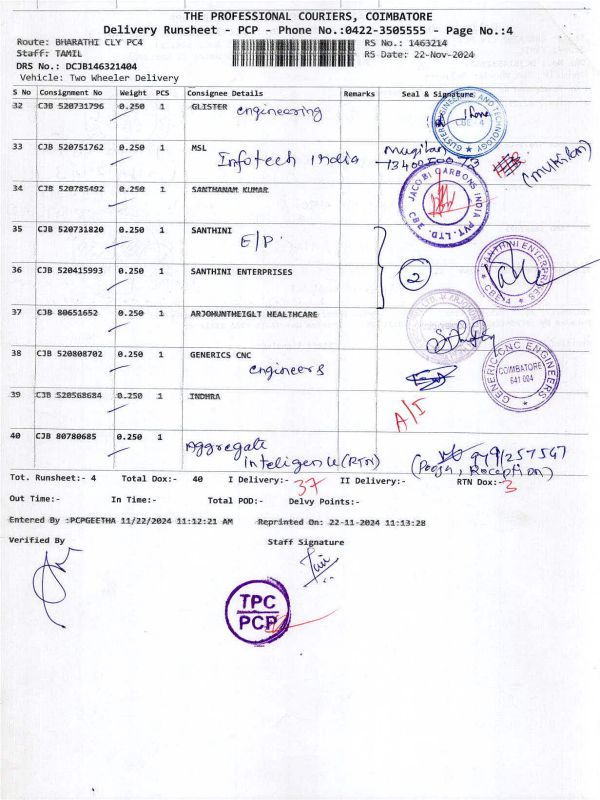 THE PROFESSIONAL COURIERS, COIMBATORE
Delivery Runsheet - PCP - Phone No.:0422-3505555 - Page No.:4
Route: BHARATHI CLY PC4 RS No.: 1463214
Staff: TAMIL RS Date: 22-Nov-2024
DRS No.: DCJB146321404
Vehicle: Two Wheeler Delivery
S No Consignment No Weight PCS Consignee Details Remarks Seal & Signature
32 CJB 520731796 0.250 1 GLISTER engineering
33 CJB 520751762 0.250 1 MSL
Infotech India
(mukilan)
34 CJB 520785492 0.250 1 SANTHANAM KUMAR
JACOBI CARBONS INDIA PVT. LTD. CBE
35 CJB 520731820 0.250 1 SANTHINI
E/P.
36 CJB 520415993 0.250 1 SANTHINI ENTERPRISES 2
SANTHINI ENTERPRISES CBE-4
37 CJB 80651652 0.250 1 ARJOHUNTHEIGLT HEALTHCARE
38 CJB 520808702 0.250 1 GENERICS CNC
Engineers
GENERIC CNC ENGINEERS COIMBATORE 641 004
39 CJB 520568684 0.250 1 INDHRA A/I
40 CJB 80780685 0.250 1 Aggregate
Inteligence (RTN)
9791257567
(Pooja, Reception)
Tot. Runsheet:- 4 Total Dox:- 40 I Delivery:- 37 II Delivery:- RTN Dox:- 3
Out Time:- In Time:- Total POD:- Delvy Points:-
Entered By :PCPGEETHA 11/22/2024 11:12:21 AM Reprinted On: 22-11-2024 11:13:28
Verified By Staff Signature
TPC
PCP